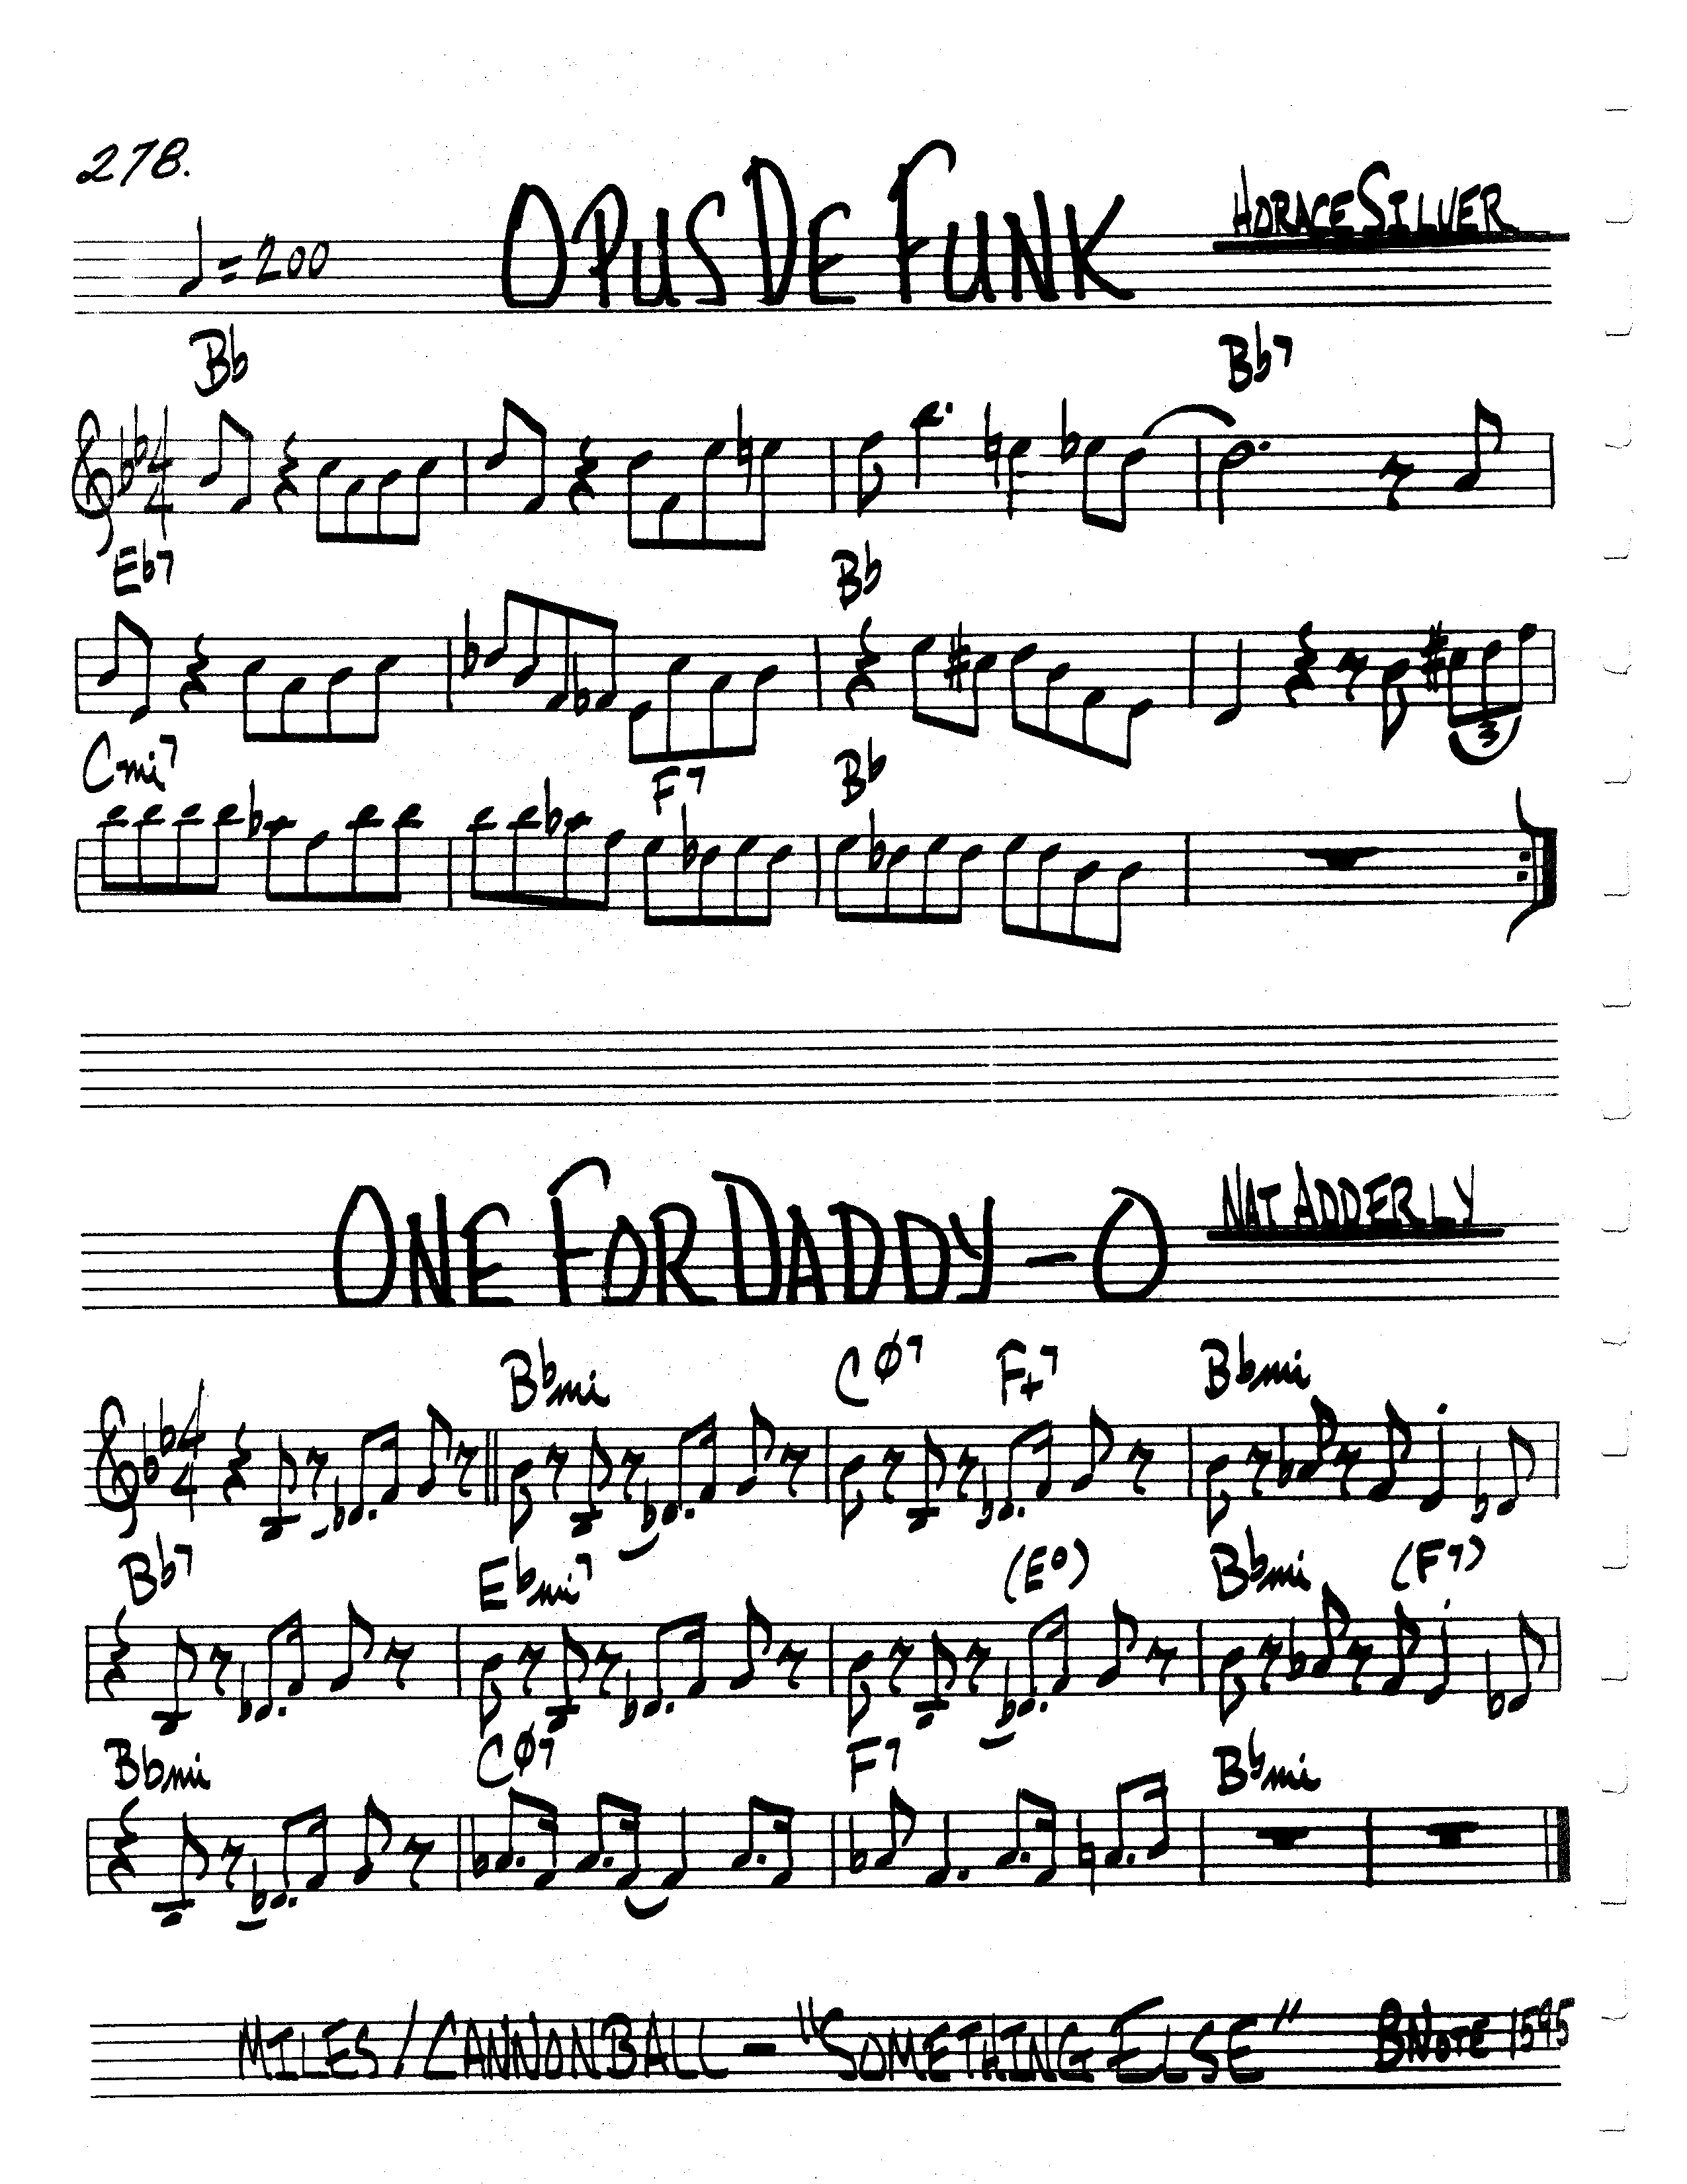 278.
OPUS DE FUNK
HORACE SILVER
♩=200
Bb Bb7
4
4
Eb7 Bb
3
Cmi7 F7 Bb
ONE FOR DADDY-O
NAT ADDERLY
Bbmi CØ7 F+7 Bbmi
4
4
Bb7 Ebmi7 (E°) Bbmi (F7)
Bbmi CØ7 F7 Bbmi
MILES/CANNONBALL - "SOMETHING ELSE" BNOTE 1595